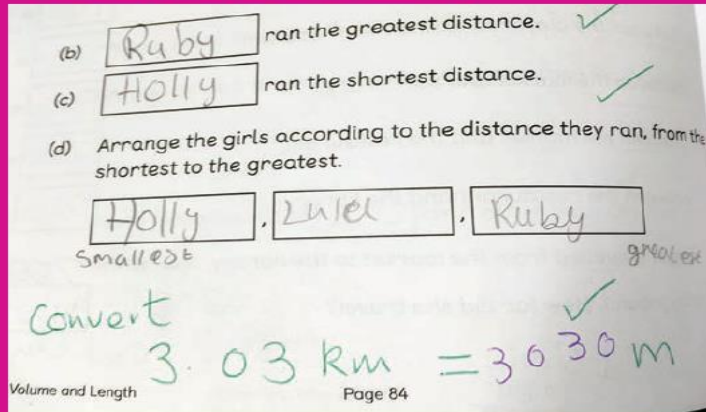 (b) Ruby ran the greatest distance. ✓
(c) Holly ran the shortest distance. ✓
(d) Arrange the girls according to the distance they ran, from the
shortest to the greatest.
Holly , Lulu , Ruby
Smallest greatest
Convert ✓
3.03 km = 3030 m
Volume and Length Page 84